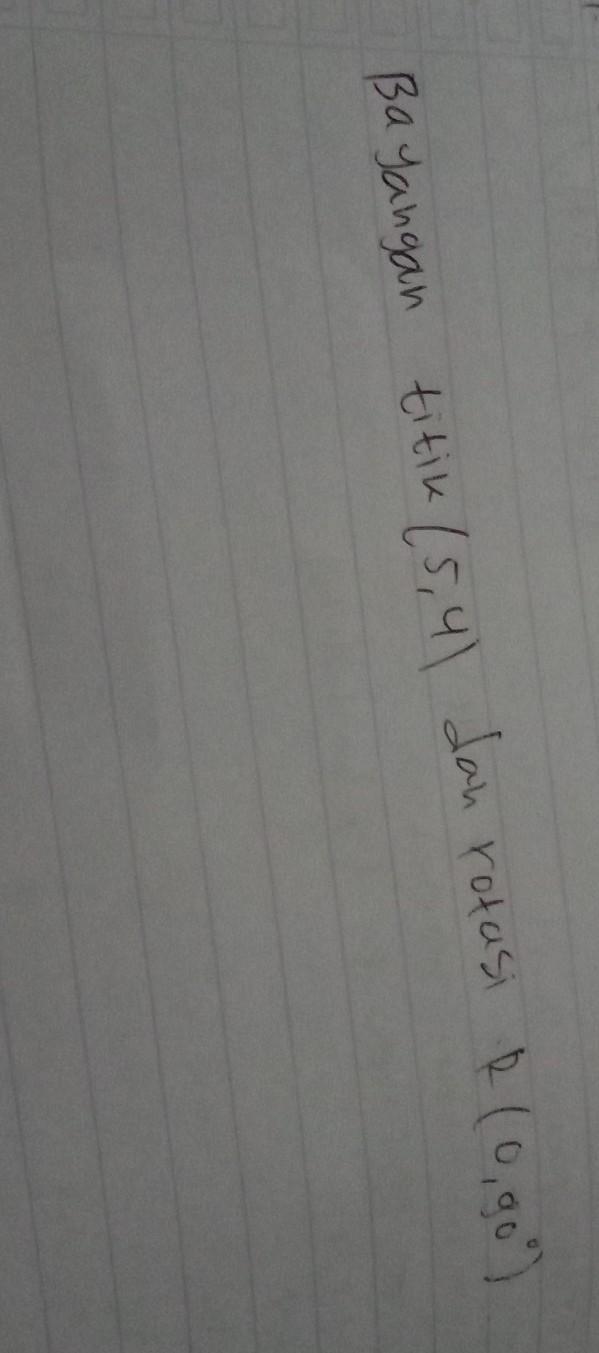 Bayangan titik (5,4) dan rotasi R (0,90°)